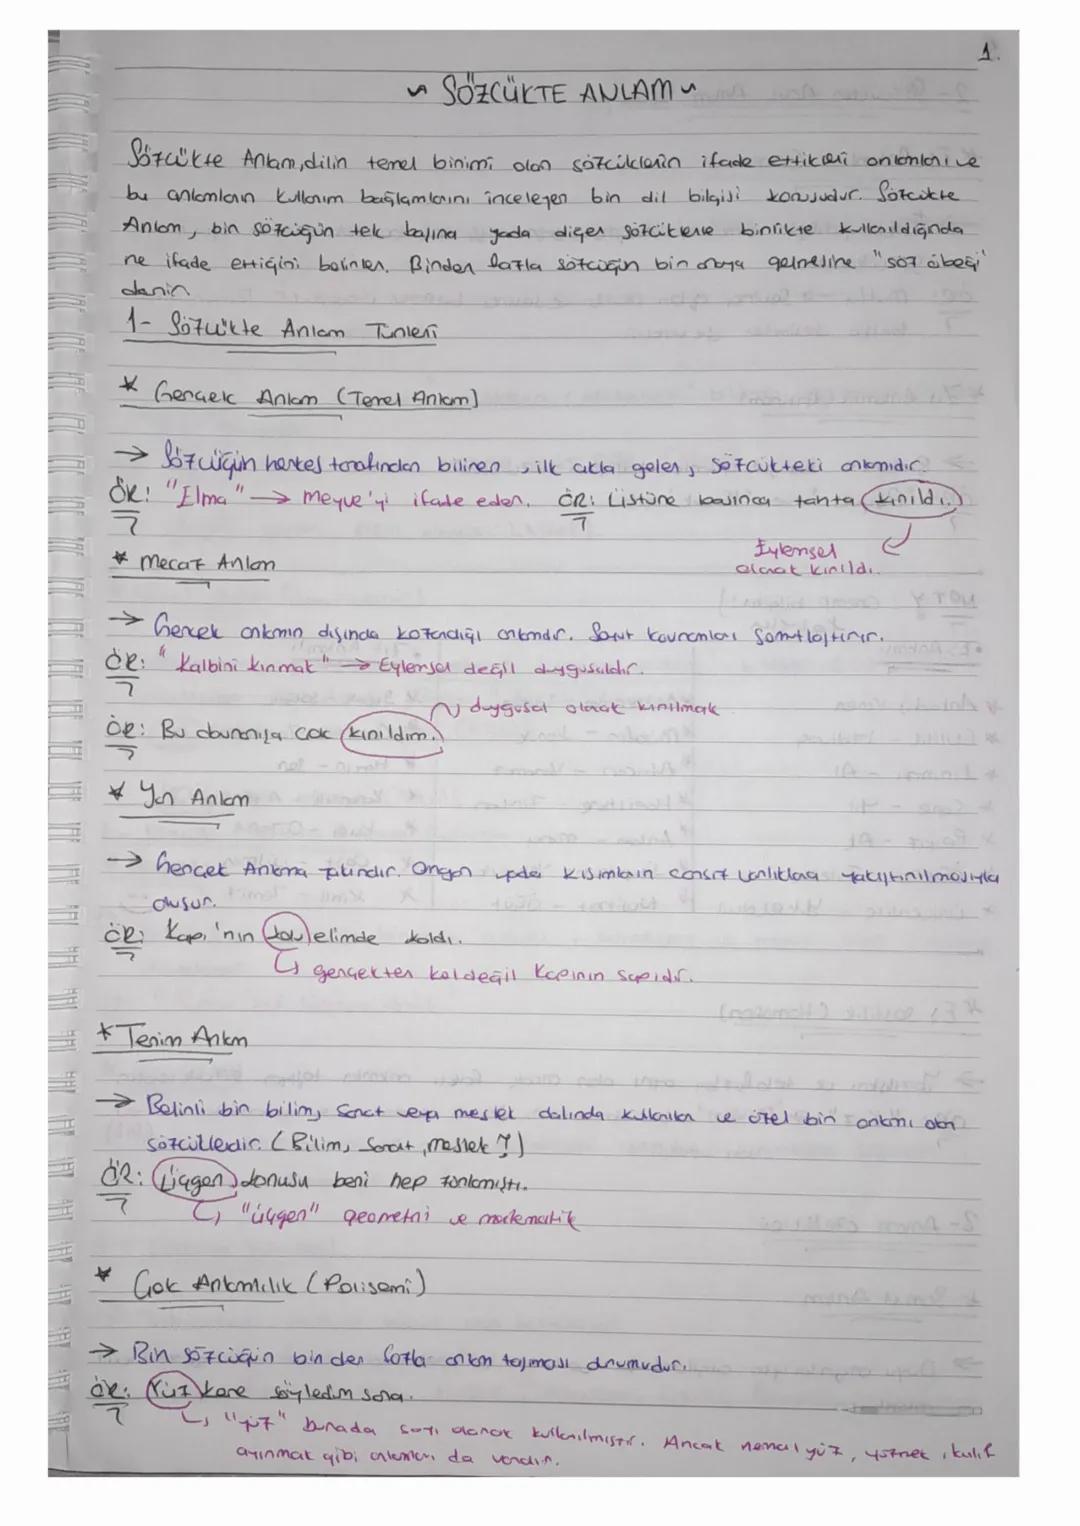 1.
~ SÖZCÜKTE ANLAM ~
Sözcükte Anlam, dilin temel birimi olan sözcüklerin ifade ettikleri anlamları ve
bu anlamların kullanım bağlamlarını inceleyen bir dil bilgisi konusudur. Sözcükte
Anlam, bir sözcüğün tek başına yada diğer sözcüklerle birlikte kullanıldığında
ne ifade ettiğini belirler. Birden fazla sözcüğün bir araya gelmesine "söz öbeği"
denir.
1- Sözcükte Anlam Türleri
* Gerçek Anlam (Temel Anlam)
→ Sözcüğün herkes tarafından bilinen, ilk akla gelen, sözcükteki anlamıdır.
ÖR: "Elma" → Meyve'yi ifade eden. ÖR: Üstüne basınca tahta kırıldı.
Eylemsel
olarak kırıldı.
* Mecaz Anlam
→ Gerçek anlamın dışında kazandığı anlamdır. Soyut kavramları somutlaştırır.
ÖR: "Kalbini kırmak" → Eylemsel değil duygusaldır.
duygusal olarak kırılmak
ÖR: Bu davranışa çok kırıldım.
* Yan Anlam
→ Gerçek Anlama yakındır. Organ yada kısımların cansız varlıklara yakıştırılmasıyla
oluşur.
ÖR: Kapı'nın kolu elimde kaldı.
gerçekten kol değil Kapının sapıdır.
* Terim Anlam
→ Belirli bir bilim, sanat veya meslek dalında kullanılan ve özel bir anlamı olan
sözcüklerdir. (Bilim, Sanat, meslek !)
ÖR: Üçgen konusu beni hep zorlamıştı.
"üçgen" geometri ve matematik
* Çok Anlamlılık (Polisemi)
→ Bir sözcüğün birden fazla anlam taşıması durumudur.
ÖR: Yüz kere söyledim sana.
"yüz" burada sayı olarak kullanılmıştır. Ancak normal yüz, yüzmek, kılıf
ayırmak gibi anlamları da vardır.